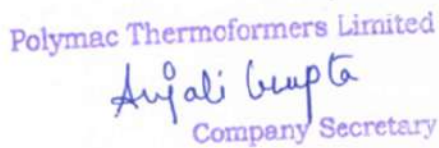 Polymac Thermoformers Limited
Anjali Gupta
Company Secretary